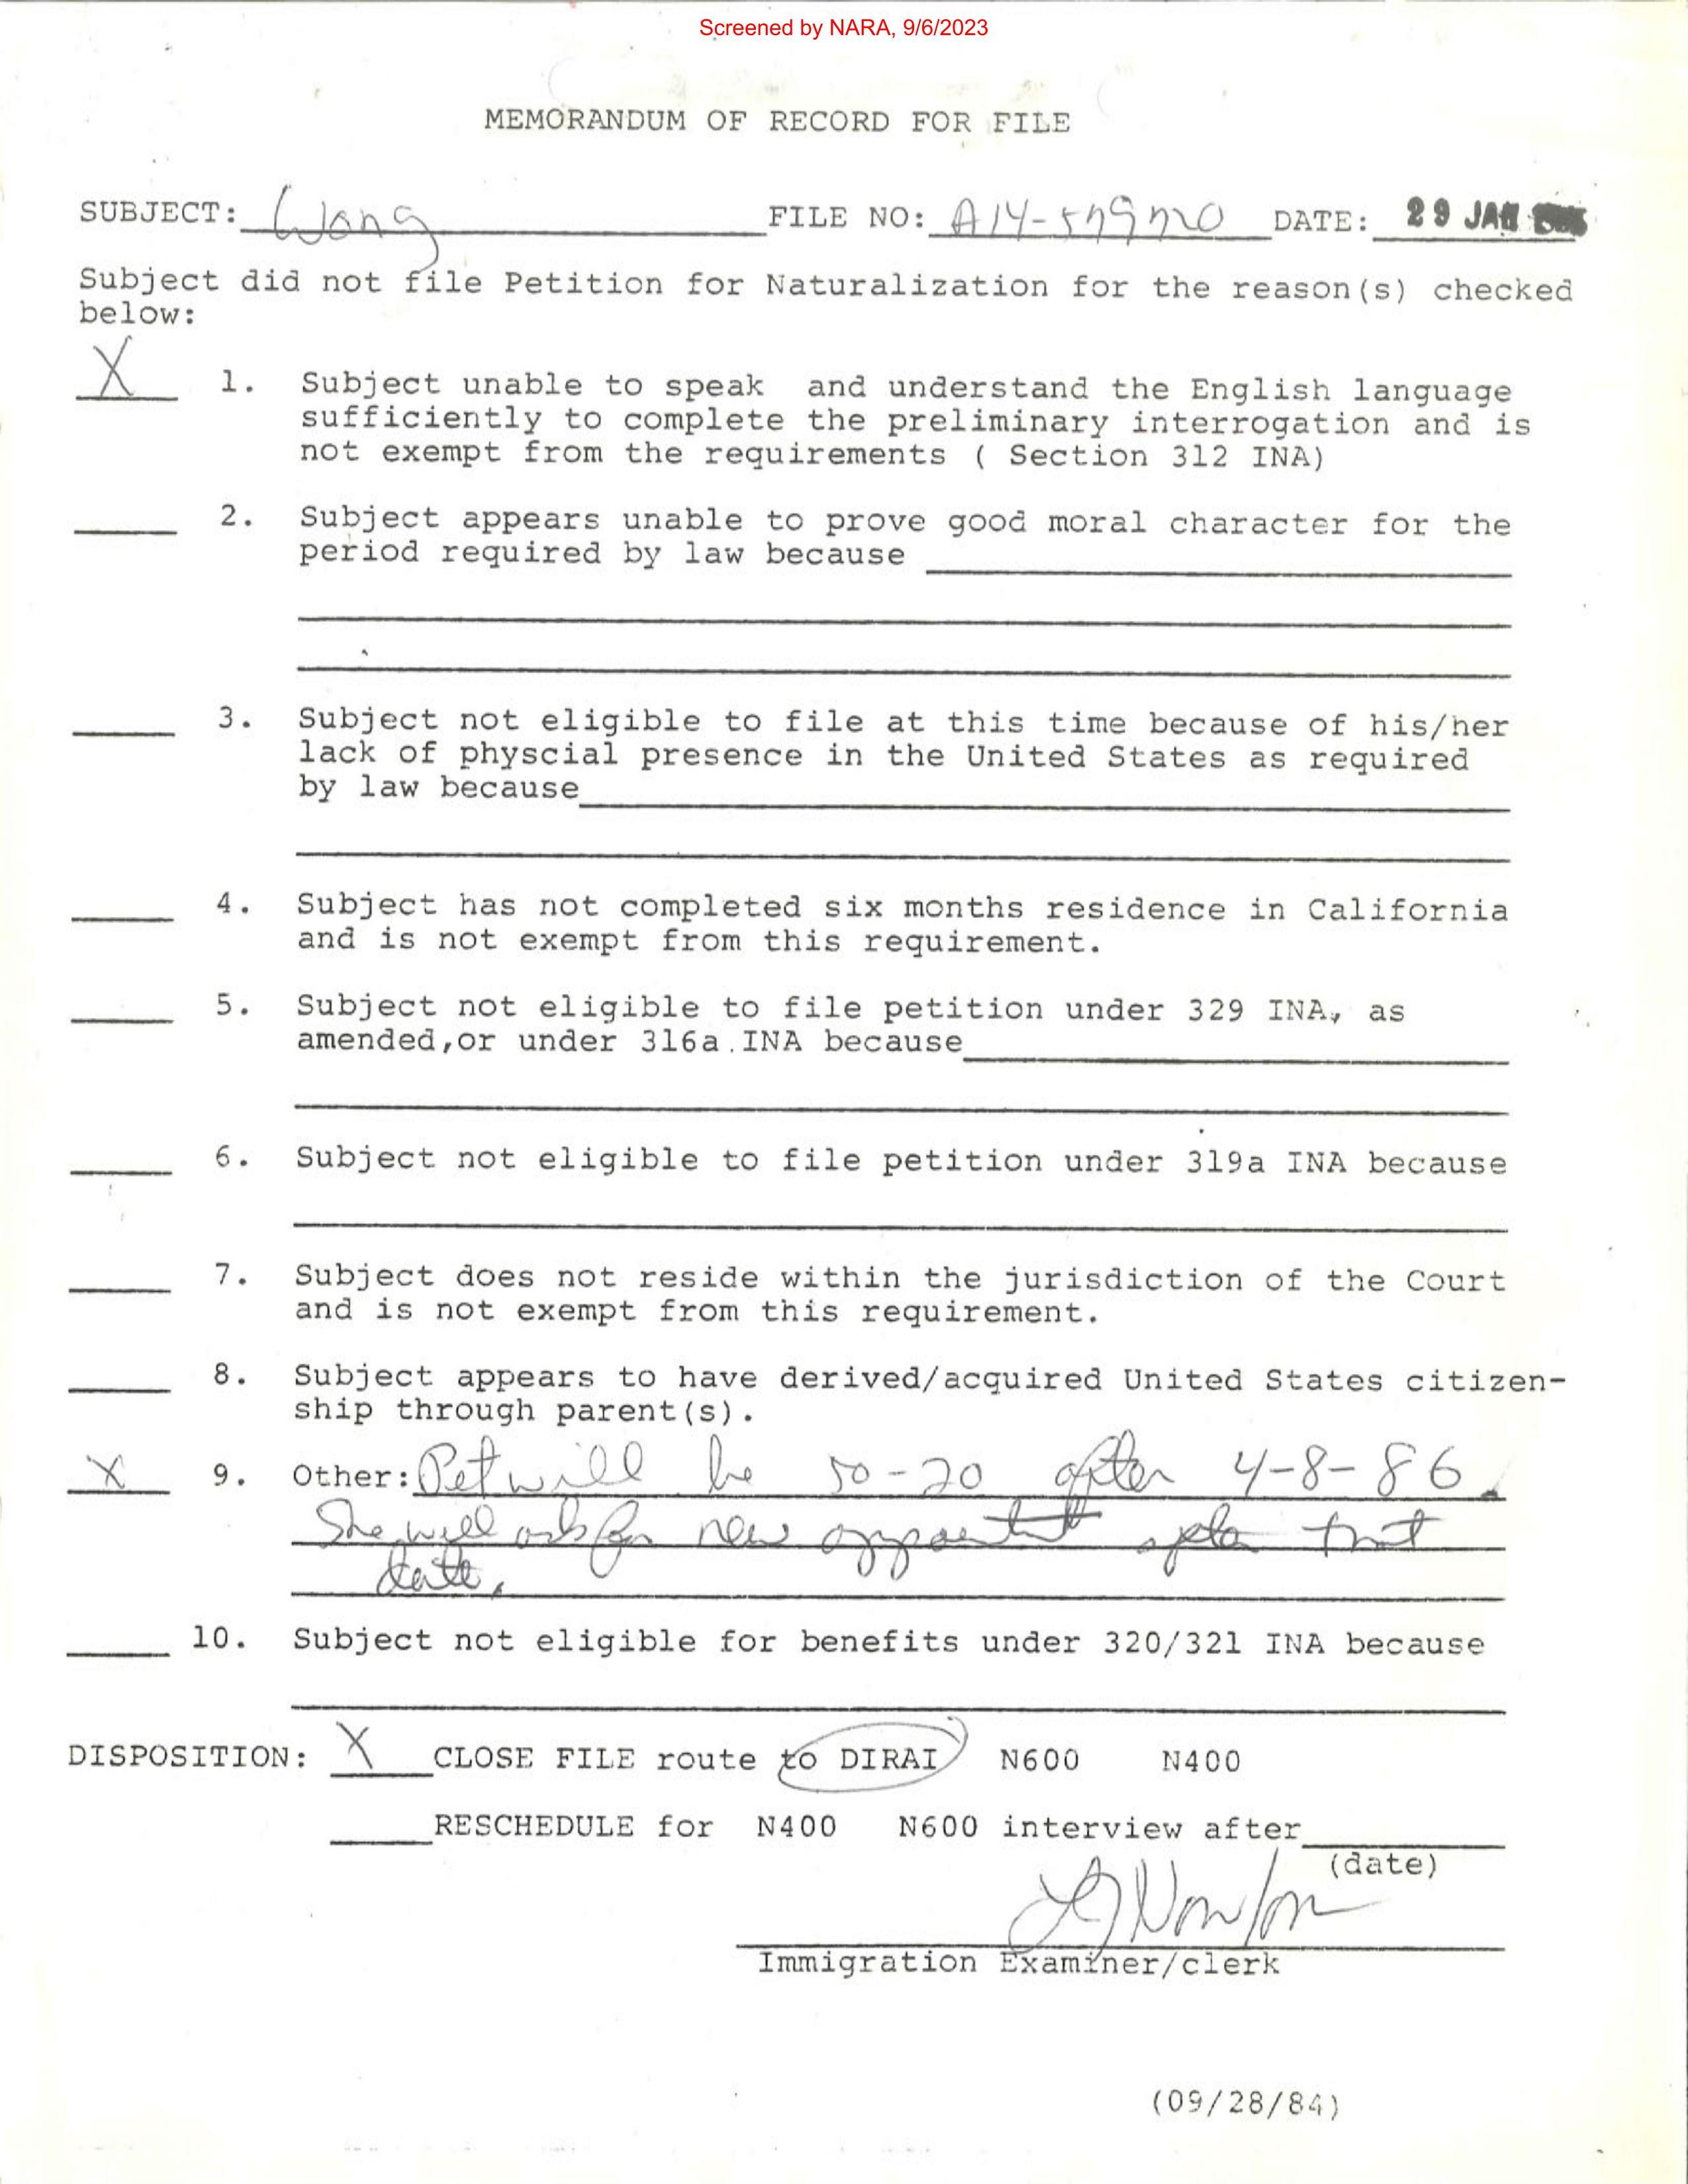 Screened by NARA, 9/6/2023
MEMORANDUM OF RECORD FOR FILE
SUBJECT: Wong FILE NO: A14-579720 DATE: 29 JAN
Subject did not file Petition for Naturalization for the reason(s) checked
below:
X 1. Subject unable to speak and understand the English language
sufficiently to complete the preliminary interrogation and is
not exempt from the requirements ( Section 312 INA)
2. Subject appears unable to prove good moral character for the
period required by law because
3. Subject not eligible to file at this time because of his/her
lack of physcial presence in the United States as required
by law because
4. Subject has not completed six months residence in California
and is not exempt from this requirement.
5. Subject not eligible to file petition under 329 INA, as
amended,or under 316a.INA because
6. Subject not eligible to file petition under 319a INA because
7. Subject does not reside within the jurisdiction of the Court
and is not exempt from this requirement.
8. Subject appears to have derived/acquired United States citizen-
ship through parent(s).
X 9. Other: Pet will be 50-20 after 4-8-86.
She will ask for new after that
date.
10. Subject not eligible for benefits under 320/321 INA because
DISPOSITION: X CLOSE FILE route to DIRAI N600 N400
RESCHEDULE for N400 N600 interview after
(date)
Immigration Examiner/clerk
(09/28/84)